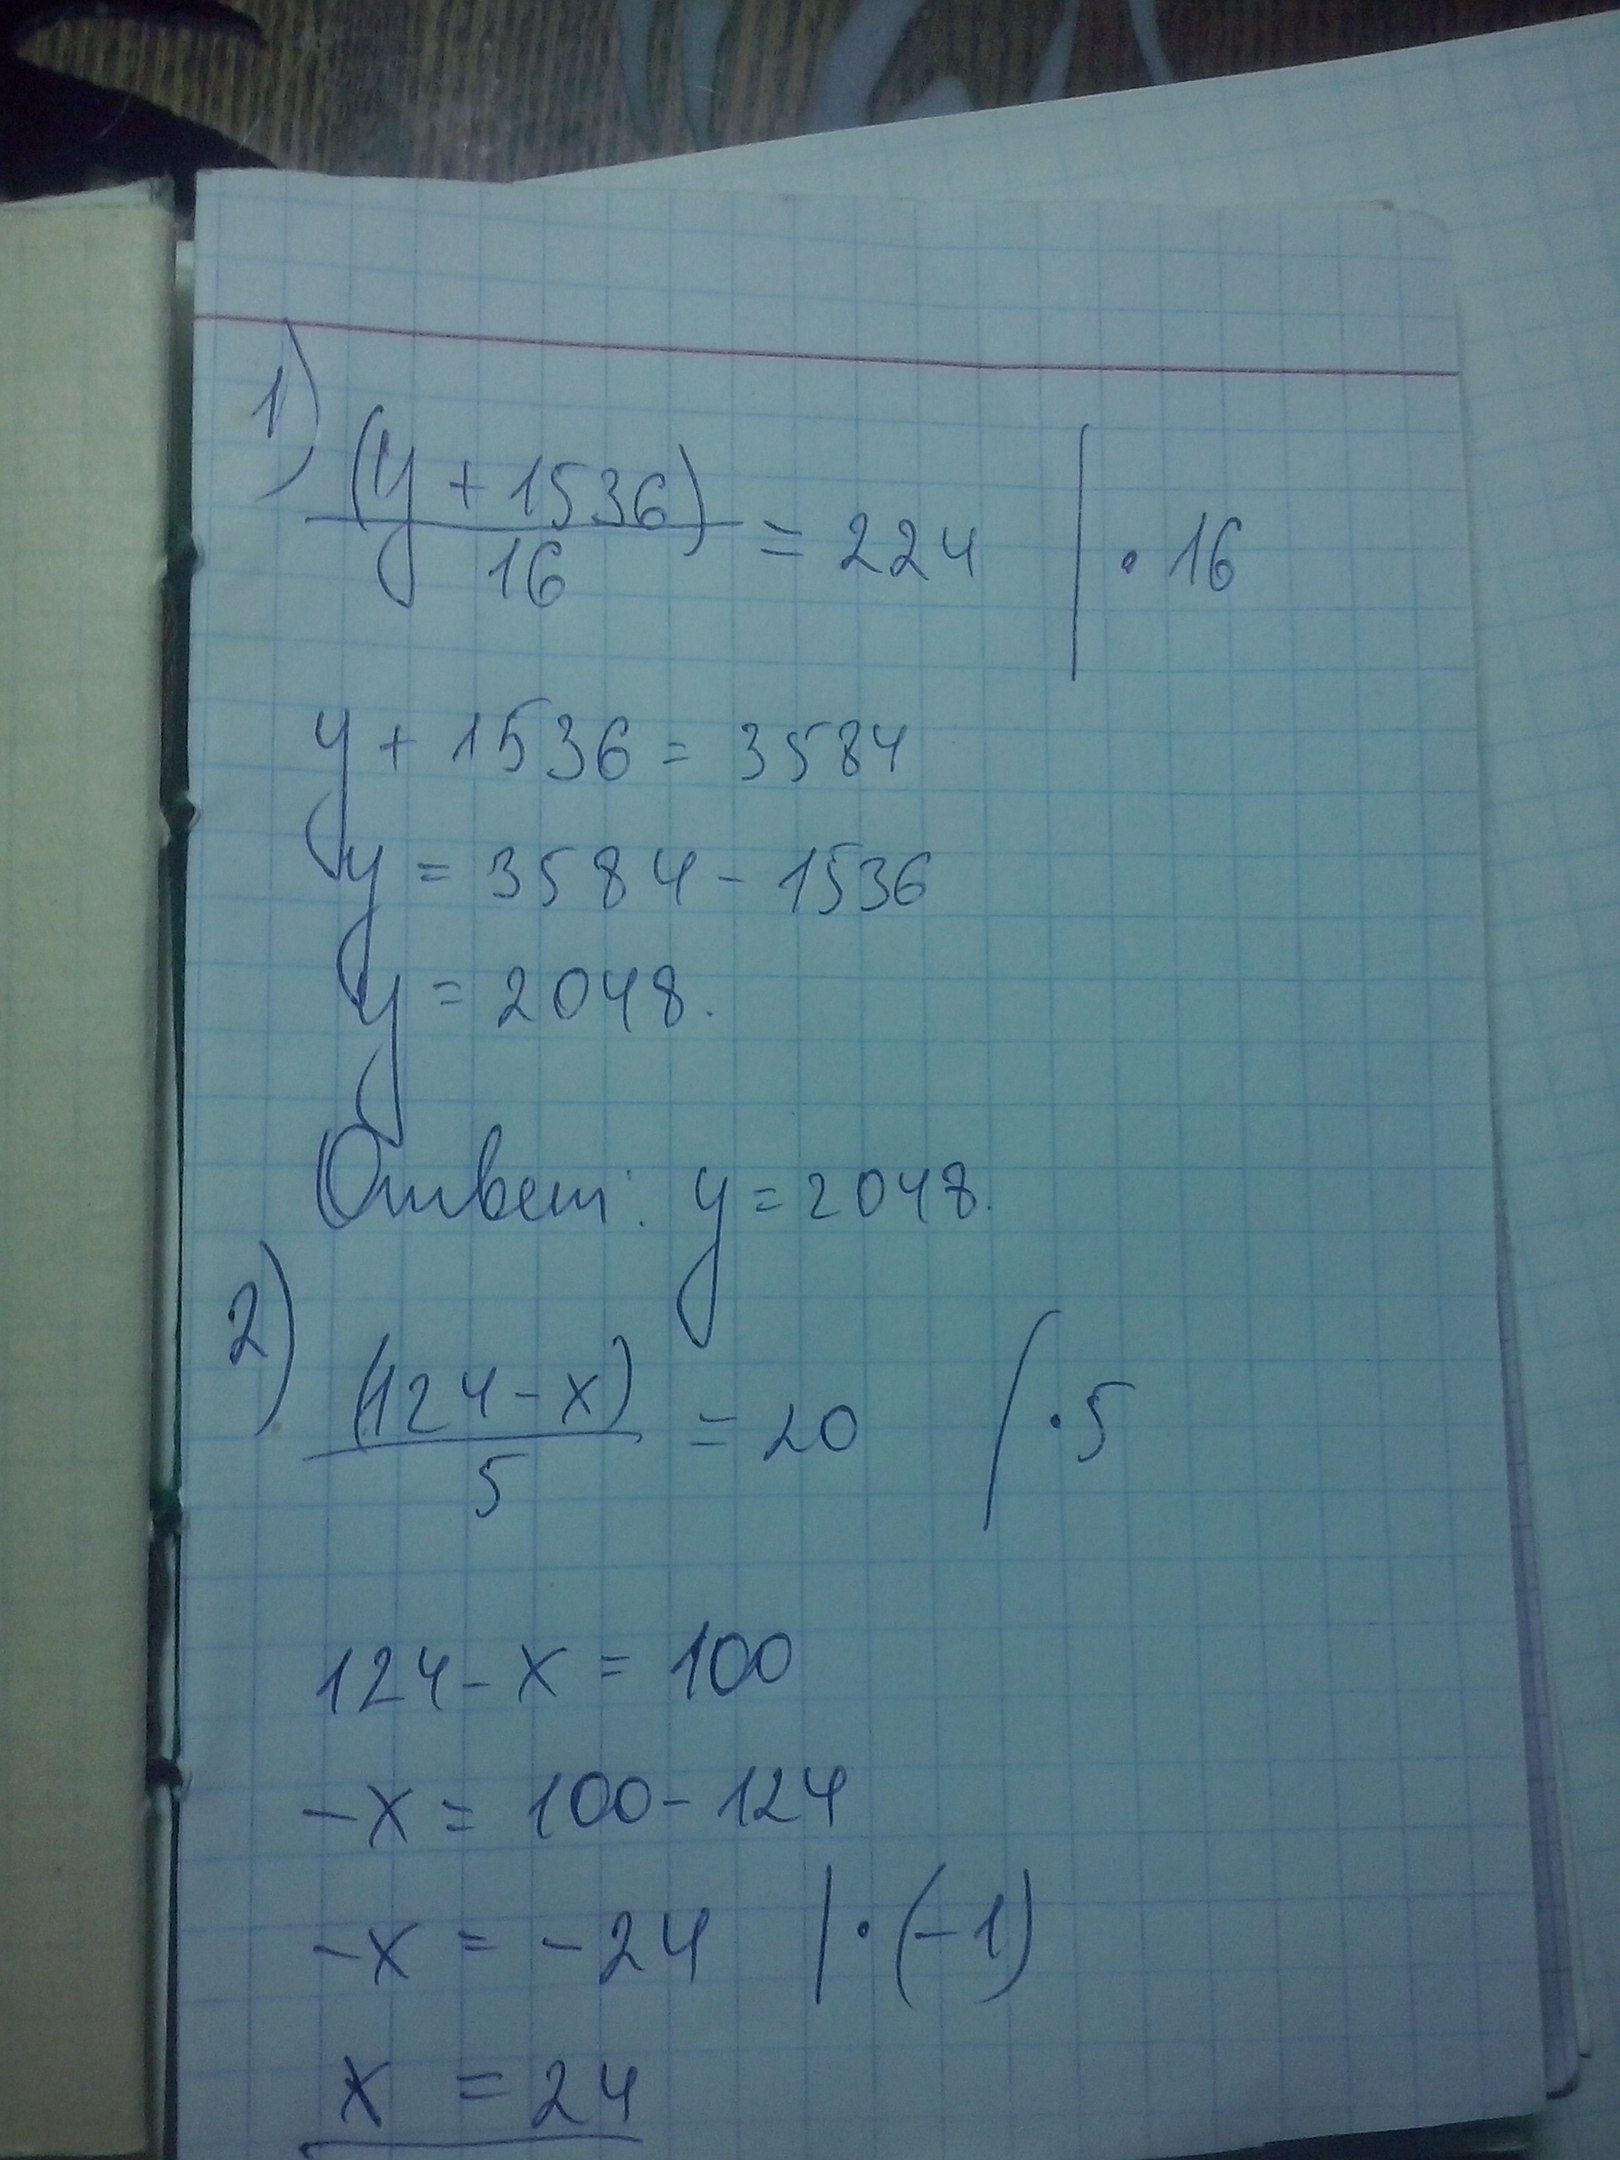 1)
(y + 1536)
16
= 224 | · 16
y + 1536 = 3584
y = 3584 - 1536
y = 2048.
Ответ: y = 2048.
2)
(124 - x)
5
= 20 | · 5
124 - x = 100
-x = 100 - 124
-x = -24 | · (-1)
x = 24